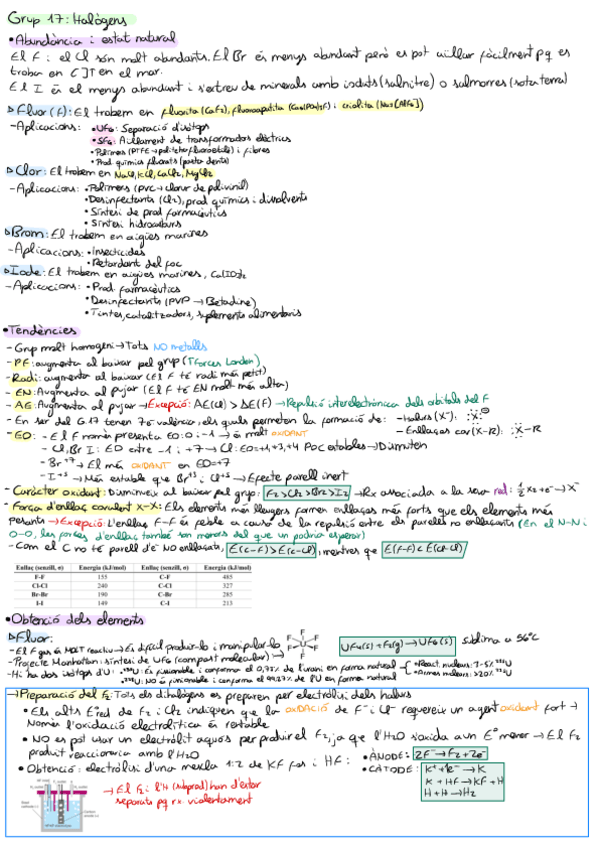 Grup 17: Halògens
• Abundància i estat natural
El F i el Cl són molt abundants. El Br és menys abundant però es pot aïllar fàcilment pq es
troba en C]T en el mar.
El I és el menys abundant i s'extreu de minerals amb iodats (salnitre) o salmorres (sota terra)
▷ Fluor (F): El trobem en fluorita (CaF2), fluoroapatita (Ca5(PO4)3F) i criolita (Na3[AlF6])
- Aplicacions: • UF6: Separació d'isòtops
• SF6: Aïllament de transformadors elèctrics
• Polímers (PTFE → politetrafluoroetilè) i fibres
• Prod. química fluorats (pasta dents)
▷ Clor: El trobem en NaCl, KCl, CaCl2, MgCl2
- Aplicacions: • Polímers (PVC → clorur de polivinil)
• Desinfectants (Cl2), prod químics i dissolvents
• Síntesi de prod farmacèutics
• Síntesi hidrocarburs
▷ Brom: El trobem en aigües marines
- Aplicacions: • Insecticides
• Retardant del foc
▷ Iode: El trobem en aigües marines, Ca(IO3)2
- Aplicacions: • Prod. farmacèutics
• Desinfectants (PVP → Betadine)
• Tintes, catalitzadors, suplements alimentaris
• Tendències
- Grup molt homogeni → Tots NO metalls
- PF: augmenta al baixar pel grup (↑Forces London)
- Radi: augmenta al baixar (El F té radi més petit)
- EN: Augmenta al pujar (El F té EN molt més alta)
- AE: Augmenta al pujar → Excepció: AE(Cl) > AE(F) → Repulsió interelectrònica dels orbitals del F
- En ser del G.17 tenen 7e- valència, els quals permeten la formació de: - Halurs (X-): :X:⊖
- Enllaços cov (X-R): :X-R
- EO: - El F només presenta EO: 0 i -1 → és molt OXIDANT
- Cl, Br I: EO entre -1 i +7 → Cl: EO=+1,+3,+4 Poc estables → Dismuten
- Br+7 → El més OXIDANT en EO=+7
- I+5 → Més estable que Br+5 i Cl+5 → Efecte parell inert
- Caràcter oxidant: Disminueix al baixar pel grup: F2>Cl2>Br2>I2 → Rx associada a la seva red: ½X2+e- → X-
- Força d'enllaç covalent X-X: Els elements més lleugers formen enllaços més forts que els elements més
pesants → Excepció: L'enllaç F-F és feble a causa de la repulsió entre els parells no enllaçants (En el N-N i
O-O, les forces d'enllaç també son menors del que un podria esperar)
- Com el C no té parell d'e- NO enllaçats, E(C-F)>E(C-Cl), mentres que E(F-F)<E(Cl-Cl)
Enllaç (senzill, σ) Energia (kJ/mol) Enllaç (senzill, σ) Energia (kJ/mol)
F-F 155 C-F 485
Cl-Cl 240 C-Cl 327
Br-Br 190 C-Br 285
I-I 149 C-I 213
• Obtenció dels elements
▷ Fluor:
- El F gas és MOLT reactiu → És difícil produir-lo i manipular-lo
UF4(s)+F2(g) → UF6(s) sublima a 56°C
- Projecte Manhattan: síntesi de UF6 (compost molecular)
- Hi ha dos isòtops d'U: • 235U: És fissionable i conforma el 0,73% de l'urani en forma natural • React. nuclears: 1-5% 235U
• 238U: NO és fissionable i conforma el 99,27% de l'U en forma natural • Armes nuclears: >20% 235U
→ Preparació del F2: Tots els dihalògens es preparen per electròlisi dels halurs
• Els alts E°red de F2 i Cl2 indiquen que la OXIDACIÓ de F- i Cl- requereix un agent oxidant fort →
Només l'oxidació electrolítica és rentable
• NO es pot usar un electròlit aquós per produir el F2, ja que l'H2O s'oxida a un E° menor → El F2
produït reaccionaria amb l'H2O
• Obtenció: electròlisi d'una mescla 1:2 de KF fos i HF: • ÀNODE: 2F- → F2 + 2e-
• CÀTODE: K+ + 1e- → K
K + HF → KF + H
H + H → H2
→ El F2 i l'H (subprod) han d'estar
separats pq rx. violentament